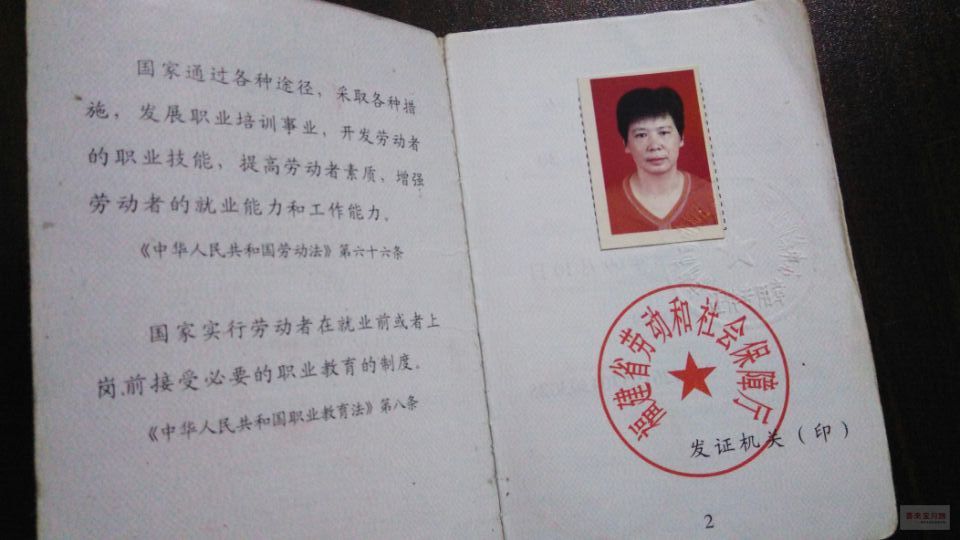 国家通过各种途径，采取各种措
施，发展职业培训事业，开发劳动者
的职业技能，提高劳动者素质，增强
劳动者的就业能力和工作能力。
《中华人民共和国劳动法》第六十六条
国家实行劳动者在就业前或者上
岗前接受必要的职业教育的制度。
《中华人民共和国职业教育法》第八条
福建省劳动和社会保障厅
发证机关（印）
2